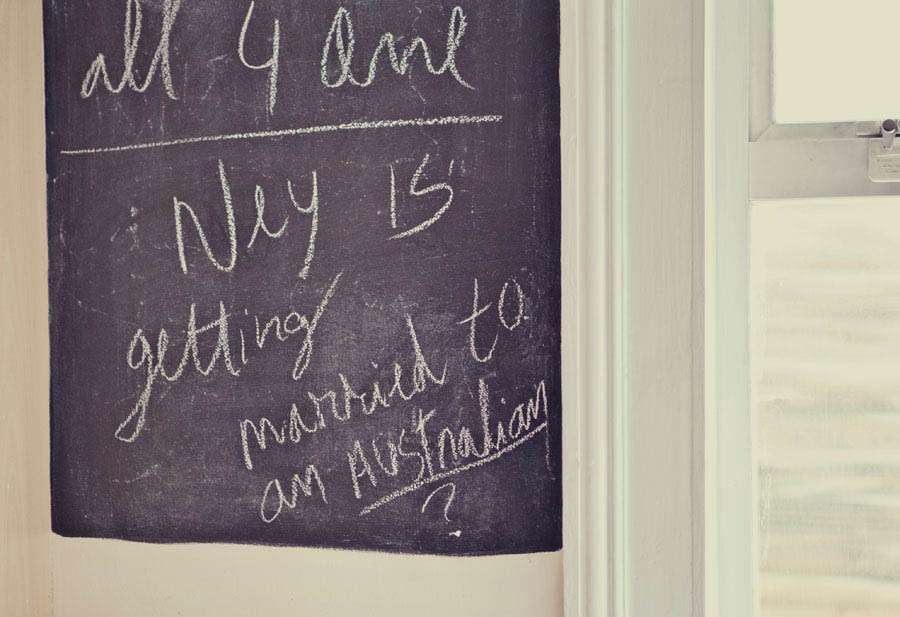 all 4 one
Ney is
getting
married to
an Australian
?